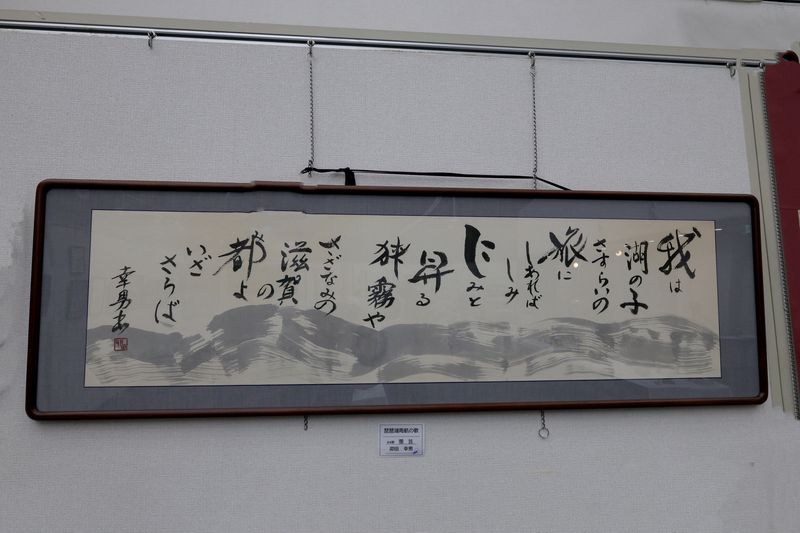 我は
湖の子
さすらいの
旅に
しあれば
しみ
じみと
昇る
狭霧や
さざなみの
滋賀
の
都よ
いざ
さらば
幸男書
琵琶湖周航の歌
幸男